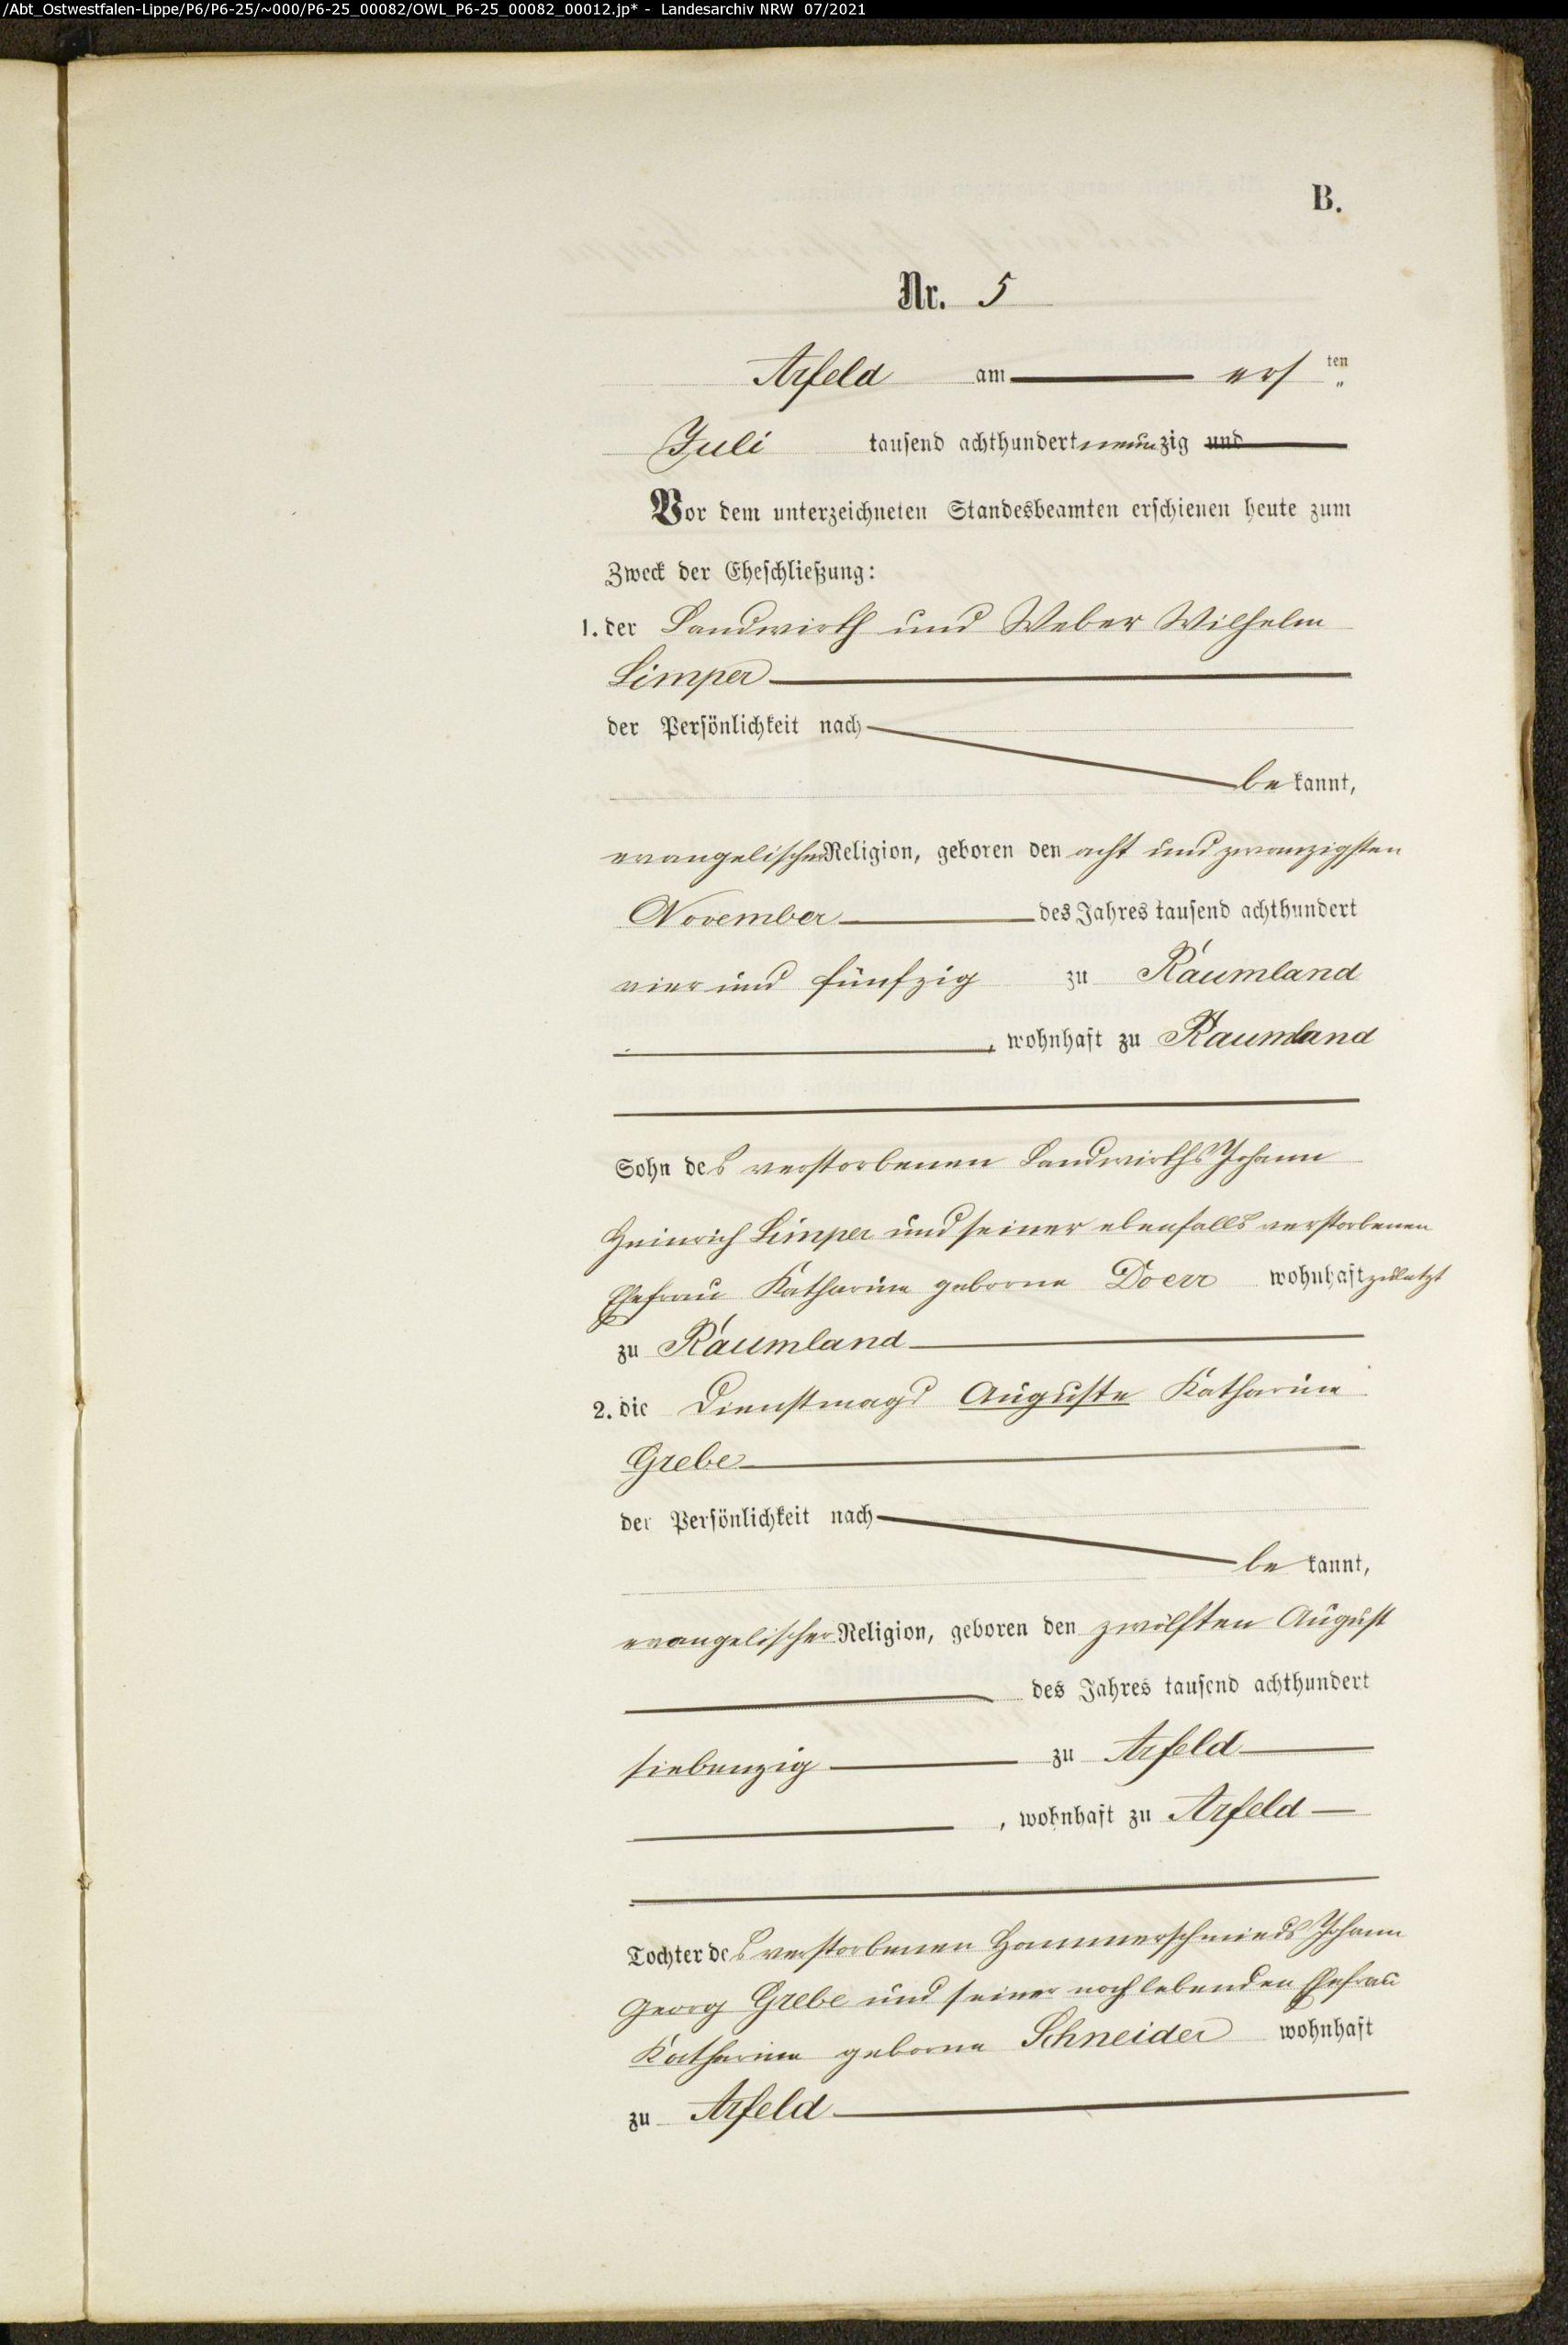 /Abt_Ostwestfalen-Lippe/P6/P6-25/~000/P6-25_00082/OWL_P6-25_00082_00012.jp* - Landesarchiv NRW 07/2021
B.
Nr. 5
Arfeld am ers ten
Juli tausend achthundert neunzig und
Vor dem unterzeichneten Standesbeamten erschienen heute zum
Zweck der Eheschließung:
1. der Landwirth und Weber Wilhelm
Limper
der Persönlichkeit nach
be kannt,
evangelischer Religion, geboren den acht und zwanzigsten
November des Jahres tausend achthundert
vier und fünfzig zu Raumland
, wohnhaft zu Raumland
Sohn des verstorbenen Landwirths Johann
Heinrich Limper und seiner ebenfalls verstorbenen
Ehefrau Katharine geborne Doerr wohnhaft zuletzt
zu Raumland
2. die Dienstmagd Auguste Katharine
Grebe
der Persönlichkeit nach
be kannt,
evangelischer Religion, geboren den zwölften August
des Jahres tausend achthundert
siebenzig zu Arfeld
, wohnhaft zu Arfeld
Tochter des verstorbenen Hammerschmieds Johann
Georg Grebe und seiner noch lebenden Ehefrau
Katharine geborne Schneider wohnhaft
zu Arfeld